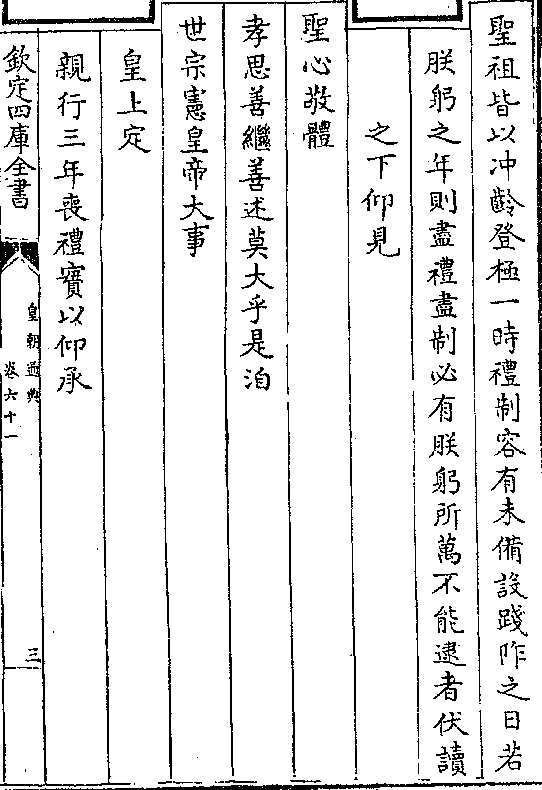 聖祖皆以冲齡登極一時禮制容有未備設踐阼之日若
朕躬之年則盡禮盡制必有朕躬所萬不能逮者伏讀
之下仰見
聖心敬體
孝思善繼善述莫大乎是洎
世宗憲皇帝大事
皇上定
親行三年喪禮實以仰承
欽定四庫全書
皇朝通典
卷六十一
三